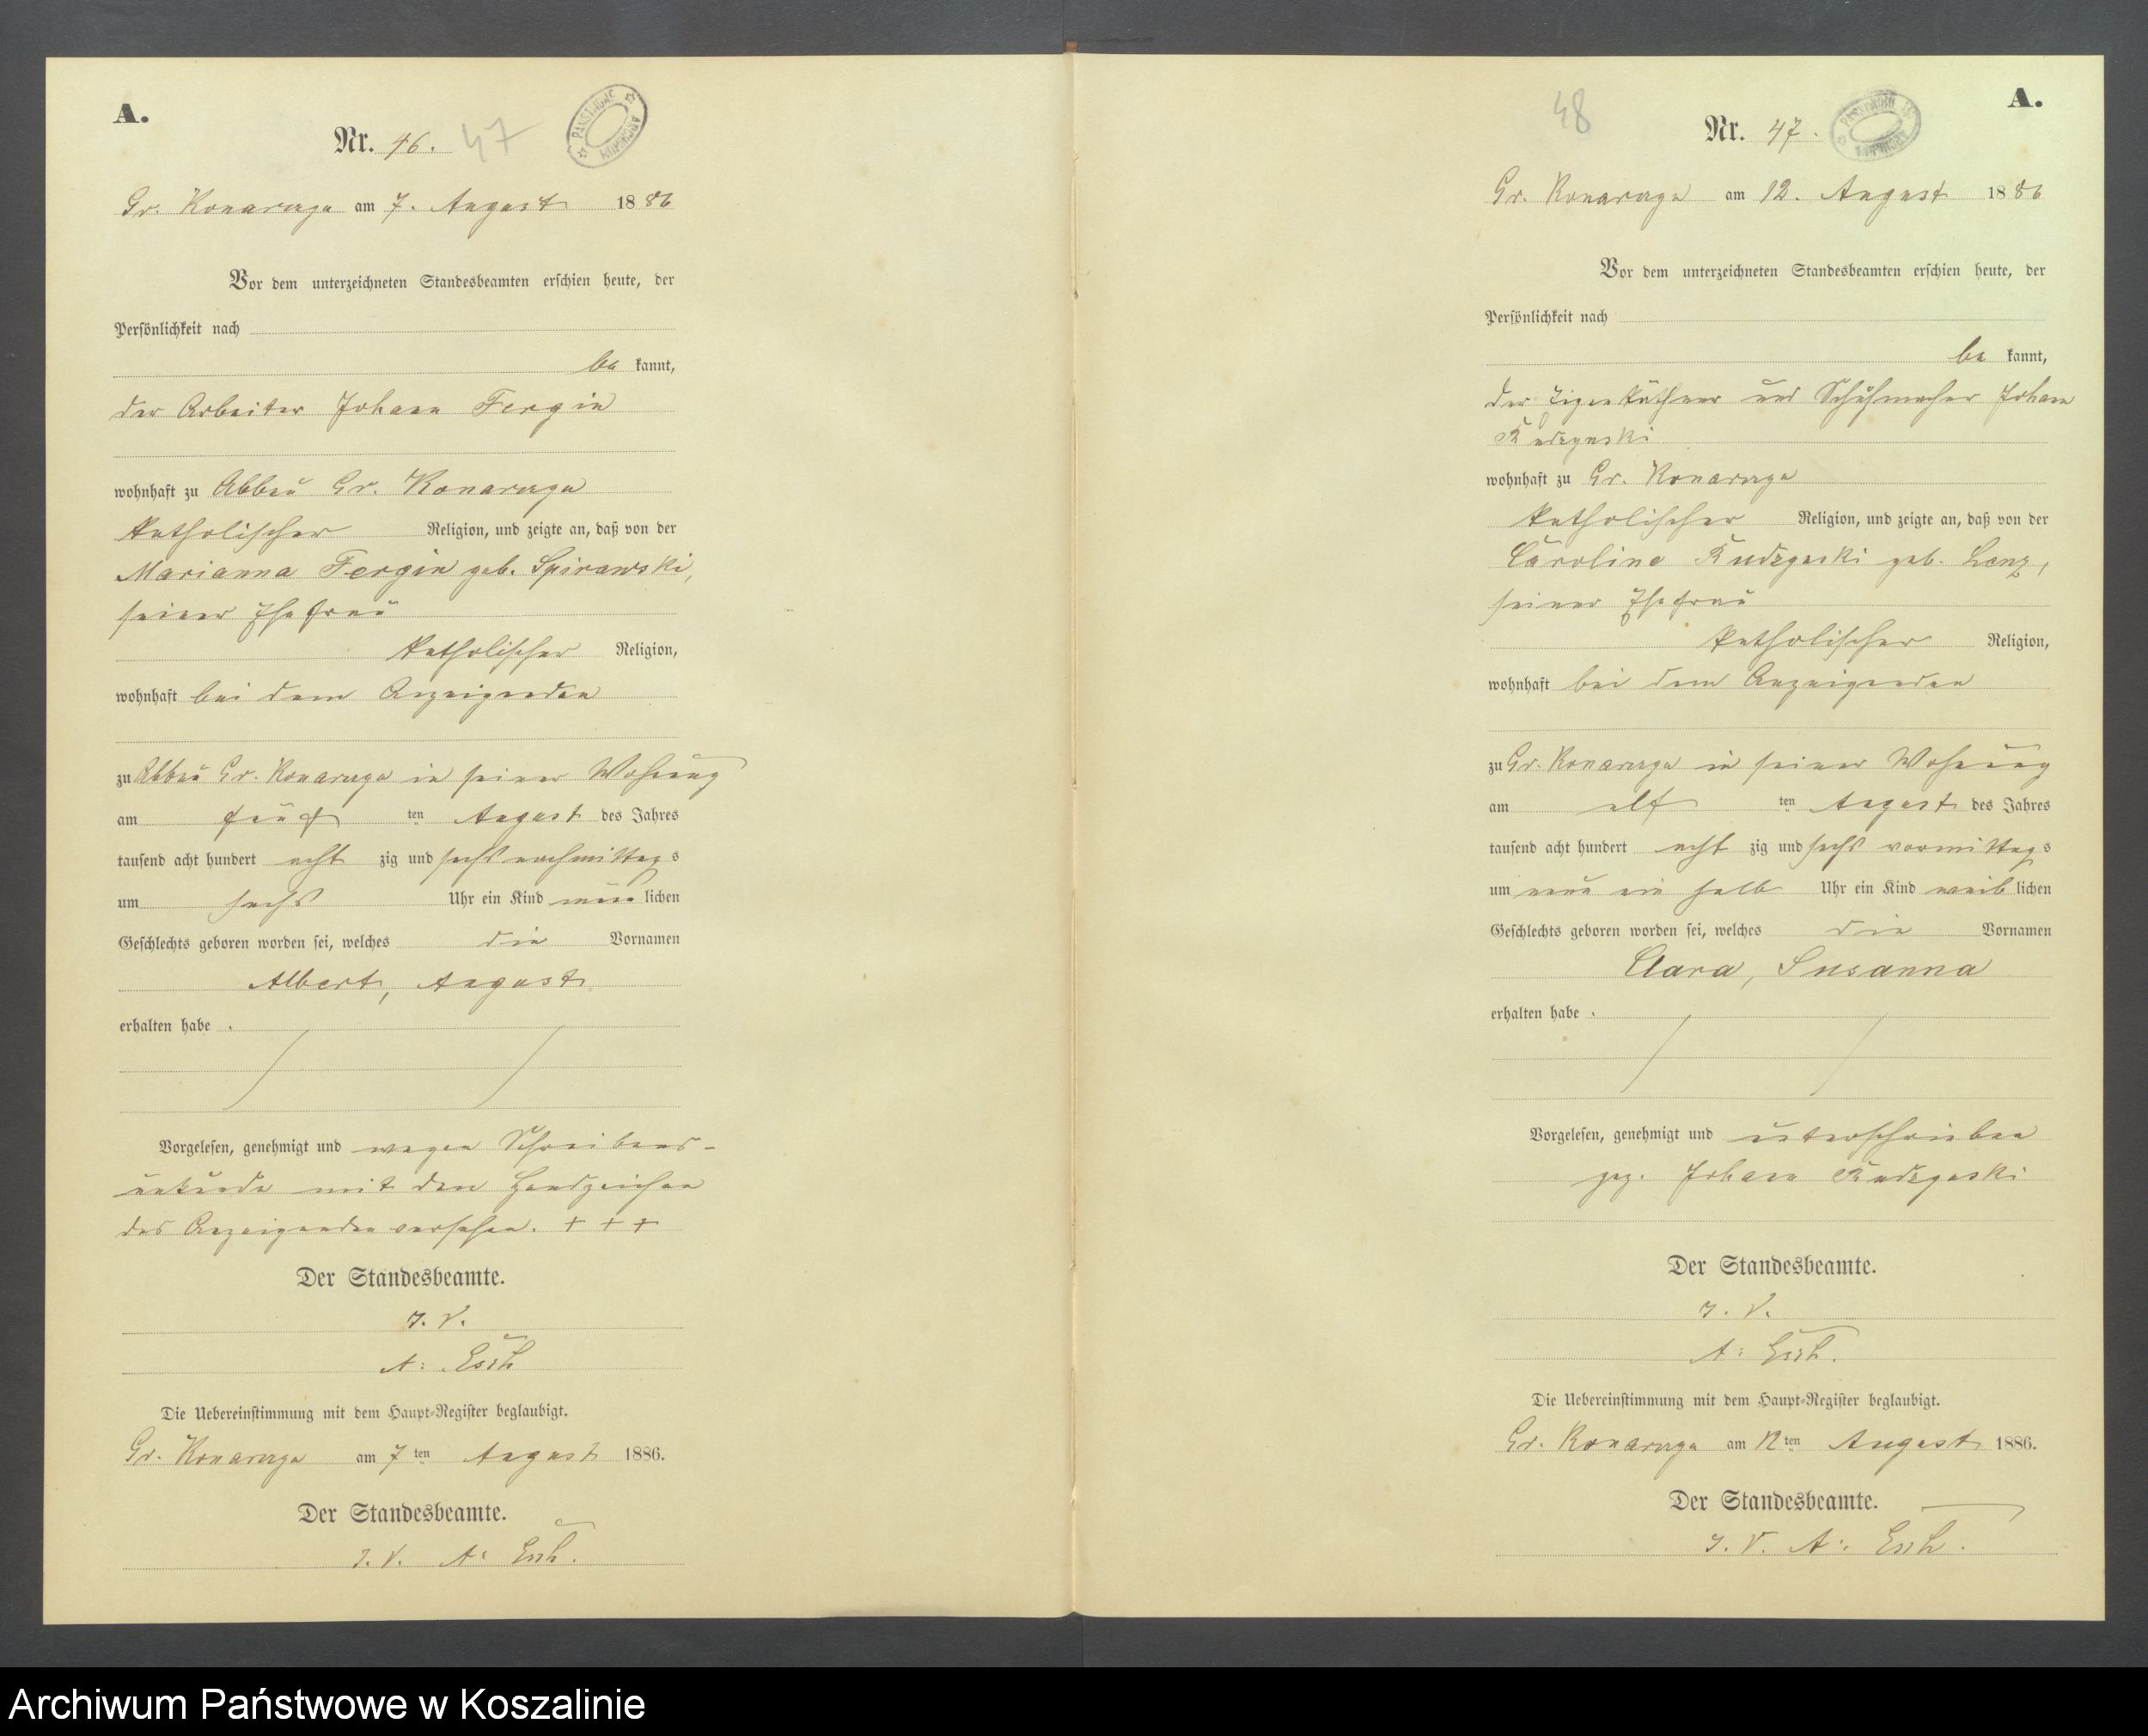 A.
Nr. 46. 47
Gr. Konarczyn am 7. August 1886
Vor dem unterzeichneten Standesbeamten erschien heute, der
Persönlichkeit nach
be kannt,
der Arbeiter Johann Fergin
wohnhaft zu Abbau Gr. Konarczyn
katholischer Religion, und zeigte an, daß von der
Marianna Fergin geb. Spirawski,
seiner Ehefrau
katholischer Religion,
wohnhaft bei dem Anzeigenden
zu Abbau Gr. Konarczyn in seiner Wohnung
am fünf ten August des Jahres
tausend acht hundert acht zig und sechs nachmittags
um sechs Uhr ein Kind männlichen
Geschlechts geboren worden sei, welches die Vornamen
Albert, August
erhalten habe.
Vorgelesen, genehmigt und wegen Schreibens-
unkunde mit den Handzeichen
des Anzeigenden versehen. + + +
Der Standesbeamte.
J. V.
A:
Die Uebereinstimmung mit dem Haupt-Register beglaubigt.
Gr. Konarczyn am 7ten August 1886.
Der Standesbeamte.
J. V. A:
48
A.
Nr. 47.
Gr. Konarczyn am 12. August 1886
Vor dem unterzeichneten Standesbeamten erschien heute, der
Persönlichkeit nach
be kannt,
der Eigenkäthner und Schuhmacher Johann
wohnhaft zu Gr. Konarczyn
katholischer Religion, und zeigte an, daß von der
Caroline geb. Lenz,
seiner Ehefrau
katholischer Religion,
wohnhaft bei dem Anzeigenden
zu Gr. Konarczyn in seiner Wohnung
am elf ten August des Jahres
tausend acht hundert acht zig und sechs vormittags
um neun ein halb Uhr ein Kind weiblichen
Geschlechts geboren worden sei, welches die Vornamen
Clara, Susanna
erhalten habe.
Vorgelesen, genehmigt und unterschrieben
gez. Johann
Der Standesbeamte.
J. V.
A:
Die Uebereinstimmung mit dem Haupt-Register beglaubigt.
Gr. Konarczyn am 12ten August 1886.
Der Standesbeamte.
J. V. A:
Archiwum Państwowe w Koszalinie